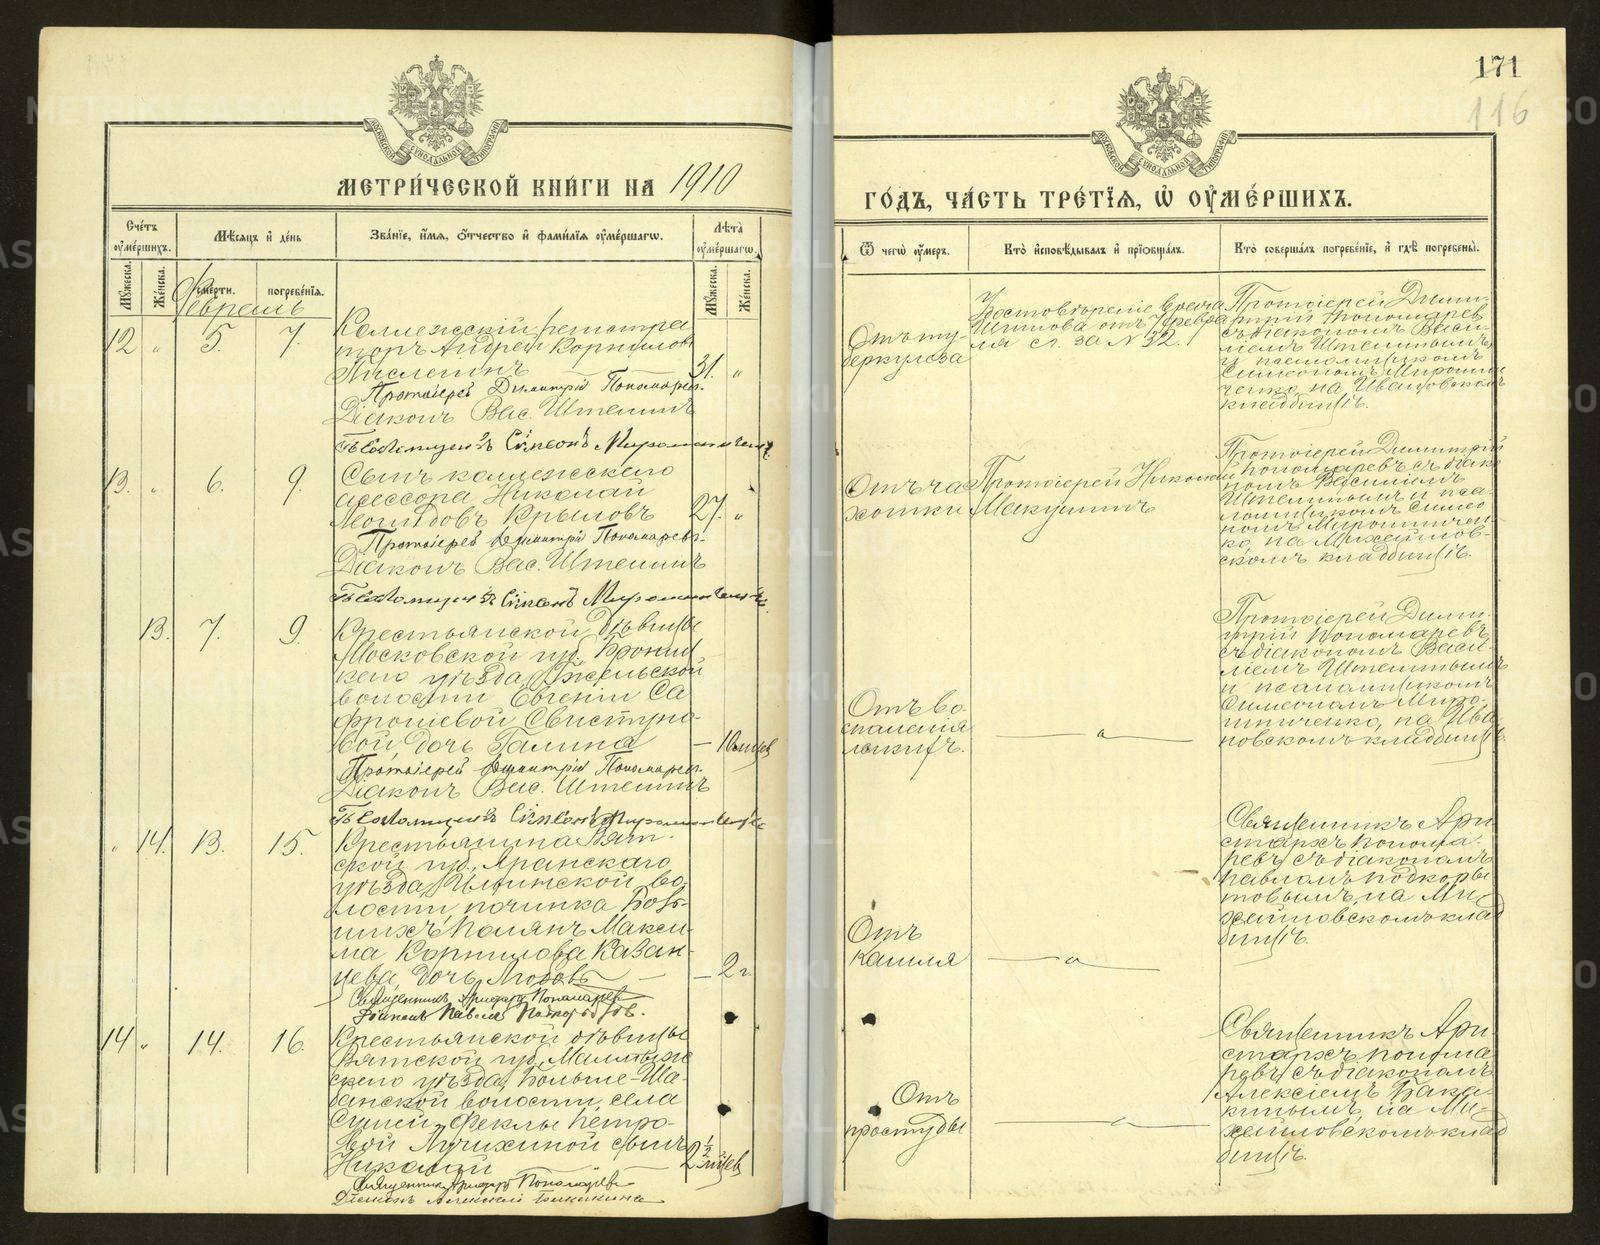 171
116
МЕТРИ́ЧЕСКОЙ КНИ́ГИ НА 1910
ГО́ДЪ, ЧА́СТЬ ТРЕ́ТІЯ, Ѡ҆ ОУ҆МЕ́РШИХЪ.
Счéтъ оу҆мéршихъ.
Мѣ́сяцъ и҆ дéнь
Звáніе, и҆́мя, ѻ҆́тчество и҆ фами́лія оу҆мéршагѡ.
Лѣ́та оу҆мéршагѡ.
Ѿ чегѡ̀ оу҆́меръ.
Ктò и҆сповѣ́дывалъ и҆ прїѡбщáлъ.
Ктò совершáлъ погребéніе, и҆ гдѣ̀ погребены̀.
Мꙋ́жеска.
Жéнска.
смéрти.
погребéнія.
Мꙋ́жеска.
Жéнска.
Февраль
12 " 5. 7.
Коллежскій регистра
торъ Андрей Корнилов
31. "
Протоіерей Димитрій Пономаревъ.
Діаконъ Вас. Штеннинъ
Псаломщикъ Симеонъ Мирошниченко
Отъ ту-
беркулеза
Удостовѣреніе врача
Шипова отъ 7 февра
ля сг. за № 32.
Протоіерей Дими-
трій Пономарев
съ діакономъ Васи-
ліемъ Штеннинымъ
и псаломщикомъ
Симеономъ Мирошни
ченко, на Ивановскомъ
кладбищѣ.
13. " 6. 9.
Сынъ коллежскаго
асессора Николай
Крыловъ
27. "
Протоіерей Димитрій Пономаревъ.
Діаконъ Вас. Штеннинъ
Псаломщикъ Симеонъ Мирошниченко
Отъ ча
хотки
Протоіерей Николай
Макушинъ
Протоіерей Димитрій
Пономаревъ съ діако
номъ Василіемъ
Штеннинымъ и пса-
ломщикомъ Симео
номъ Мирошничен-
ко, на Михайлов-
скомъ кладбищѣ.
13. 7. 9.
Крестьянской дѣвицы
Московской губ. Бронниц
каго уѣзда, Гжельской
волости Евгеніи Са
фроніевой Свистуно-
вой, дочь Галина
— 10 мцевъ
Протоіерей Димитрій Пономаревъ.
Діаконъ Вас. Штеннинъ
Псаломщикъ Симеонъ Мирошниченко
Отъ во
спаленія
легкихъ.
Протоіерей Дими-
трій Пономаревъ
съ діакономъ Васи-
ліемъ Штеннинымъ
и псаломщикомъ
Симеономъ Миро-
шниченко, на Ива
новскомъ кладбищѣ.
" 14. 13. 15.
Крестьянина Вят-
ской губ., Яранскаго
уѣзда, Ильинской во-
лости, починка Боль-
шихъ Полянъ Макси-
ма Корнилова Казан-
цева, дочь Любовь
— 2 г.
Священникъ Аристархъ Пономаревъ
Діаконъ Павелъ Подкорытовъ.
Отъ
кашля
Священникъ Ари-
стархъ Понома-
ревъ съ діакономъ
Павломъ Подкоры
товымъ, на Ми-
хайловскомъ клад
бищѣ.
14 " 14. 16.
Крестьянской дѣвицы
Вятской губ., Малмыж
скаго уѣзда, Больше-Ша-
банской волости, села
Ѳеклы Петро-
вой Лучихиной сынъ
Николай
2½ мцевъ
Священникъ Аристархъ Пономаревъ
Діаконъ Алексій Бакакинъ
Отъ
простуды
Священникъ Ари-
стархъ Понома
ревъ съ діакономъ
Алексіемъ Бака-
кинымъ, на Ми-
хайловскомъ клад
бищѣ.